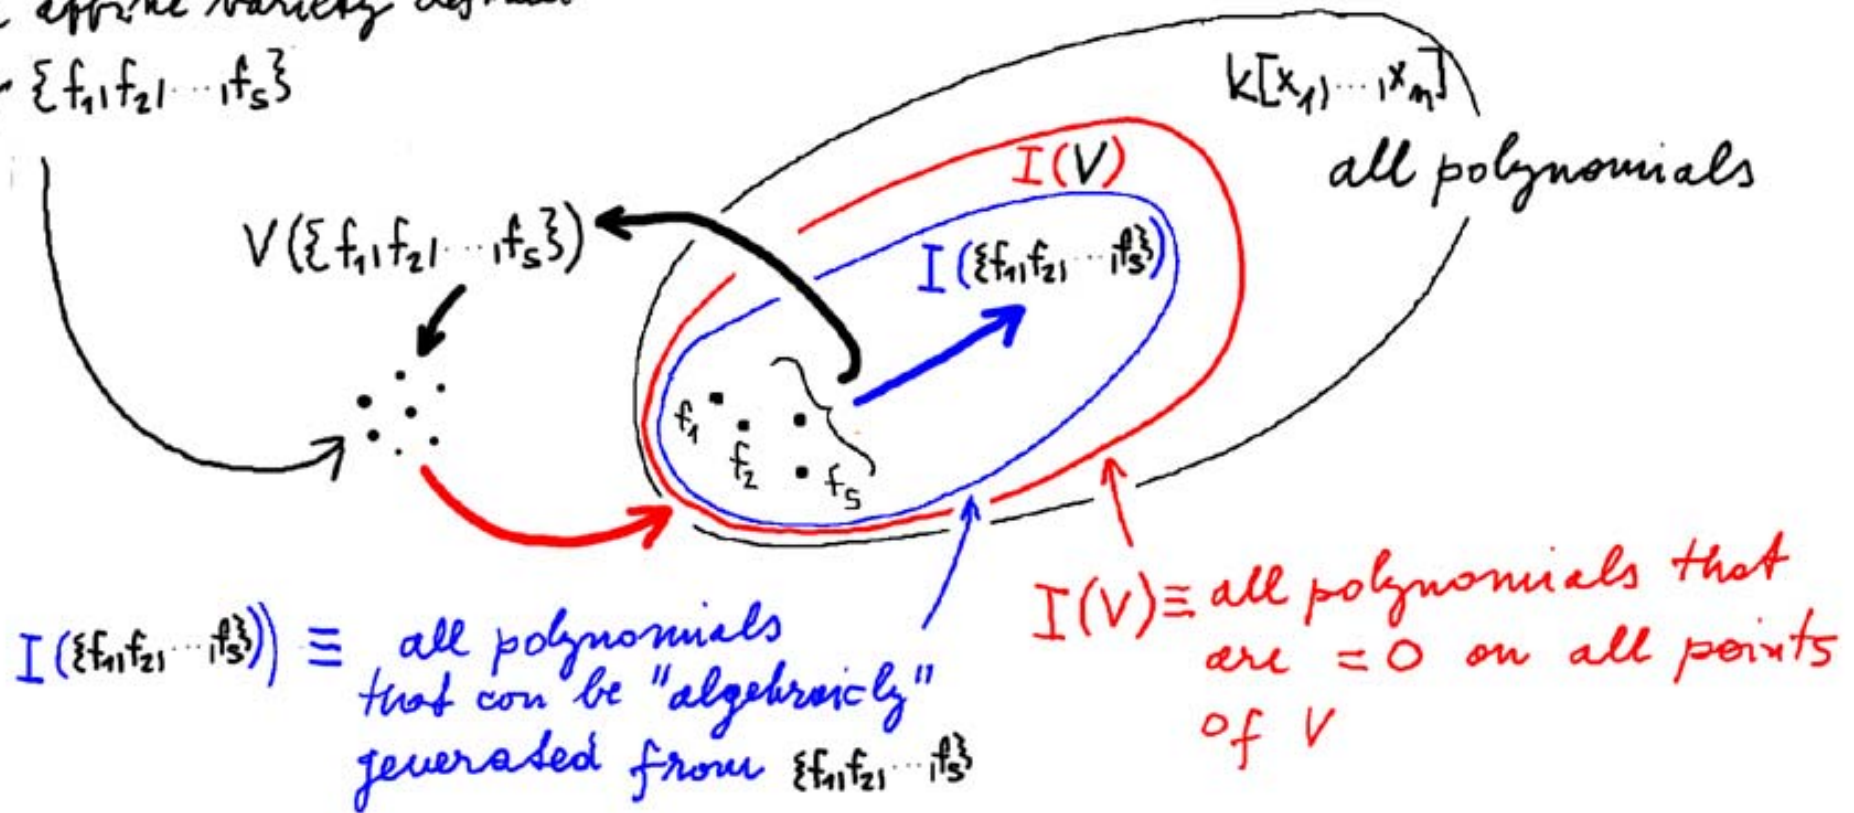 affine variety
{f₁,f₂,…,fₛ}
k[x₁,…,xₙ]
all polynomials
I(V)
V({f₁,f₂,…,fₛ})
I({f₁,f₂,…,fₛ})
f₁
f₂
fₛ
I({f₁,f₂,…,fₛ})) ≡ all polynomials
that can be "algebraicly"
generated from {f₁,f₂,…,fₛ}
I(V) ≡ all polynomials that
are =0 on all points
of V